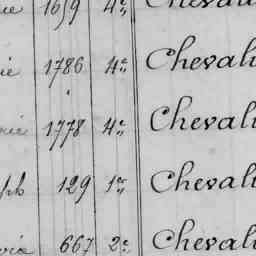 1659 4e Chevali
ie 1786 4e Chevali
rie 1778 4e Chevali
ph 129 1er Chevali
rie 667 2e Chevali